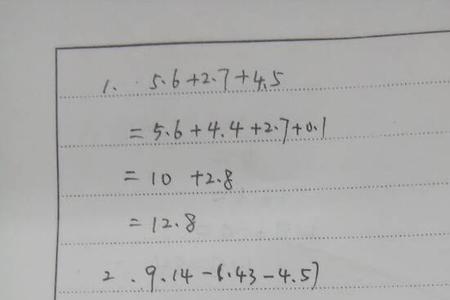 1. 5.6+2.7+4.5
=5.6+4.4+2.7+0.1
=10 +2.8
=12.8
2. 9.14-1.43-4.57